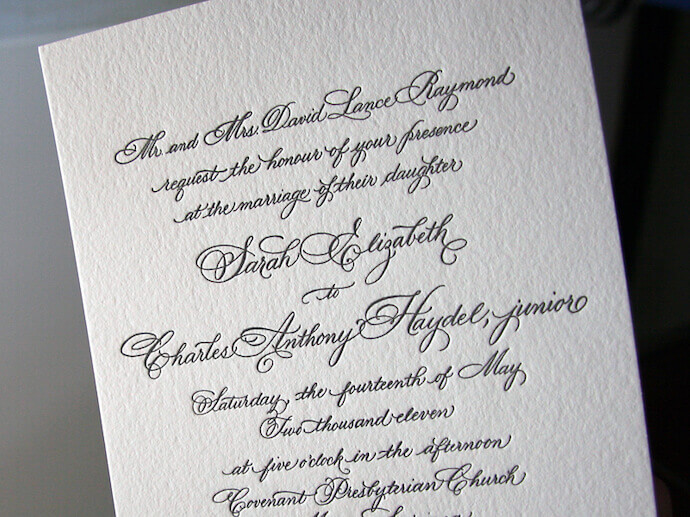 Mr. and Mrs. David Lance Raymond
request the honour of your presence
at the marriage of their daughter
Sarah Elizabeth
to
Charles Anthony Haydel, junior
Saturday, the fourteenth of May
Two thousand eleven
at five o'clock in the afternoon
Covenant Presbyterian Church